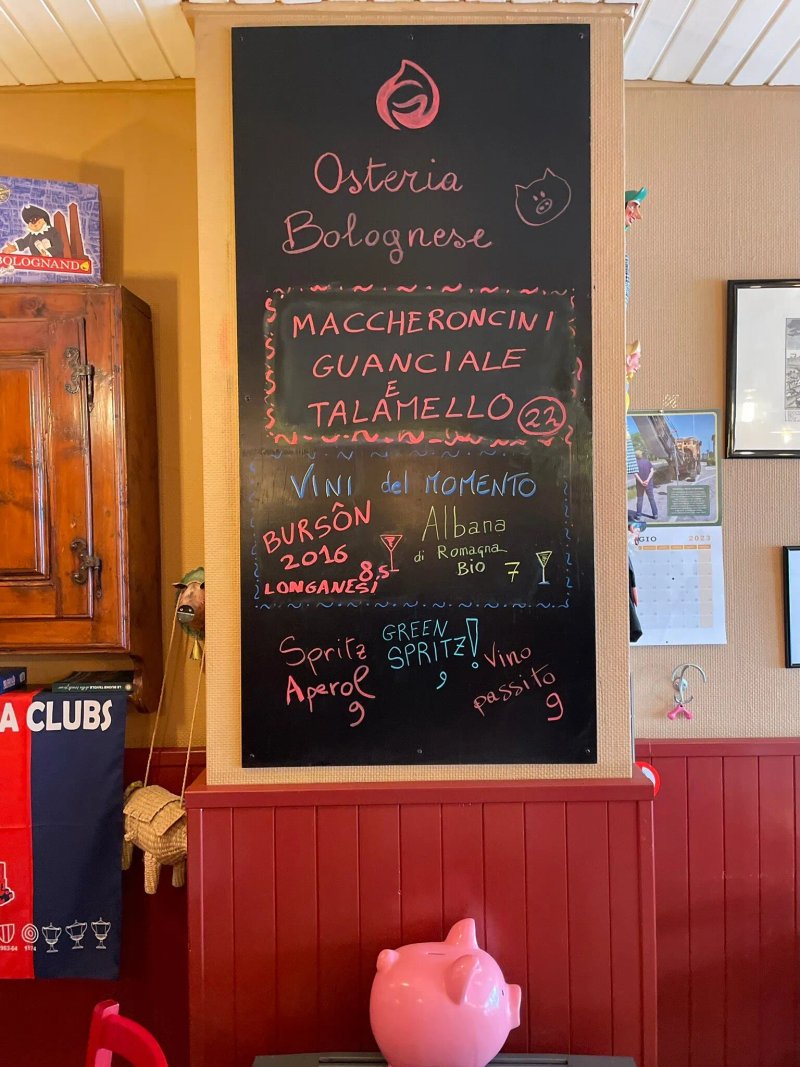 Osteria
Bolognese
MACCHERONCINI
GUANCIALE
E
TALAMELLO 22
VINI del MOMENTO
BURSÔN
2016
LONGANESI 8,5
Albana
di Romagna
BIO 7
Spritz
Aperol
9
GREEN
SPRITZ!
9
Vino
passito
9
BOLOGNANDO
A CLUBS
GIO 2023